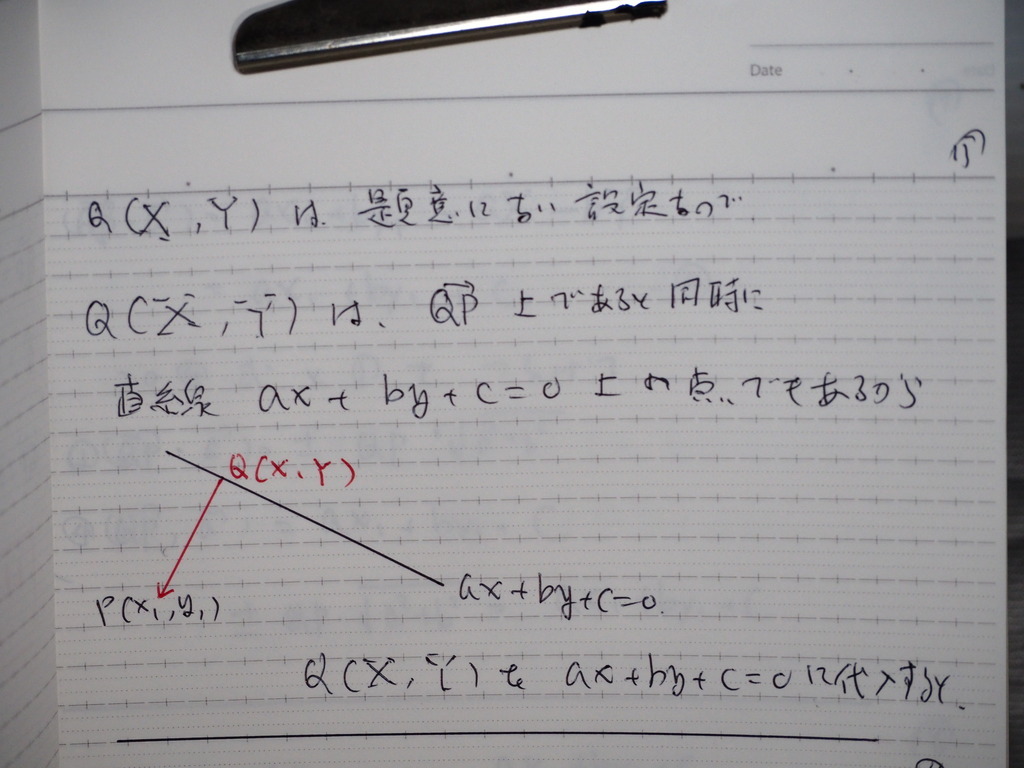 Date
Q(X,Y)は、題意において設定するので
Q(X,Y)は、QP→上であると同時に
直線 ax+by+c=0 上の点でもあるから
Q(X,Y)
P(x₁,y₁)
ax+by+c=0.
Q(X,Y)を ax+by+c=0に代入すると、